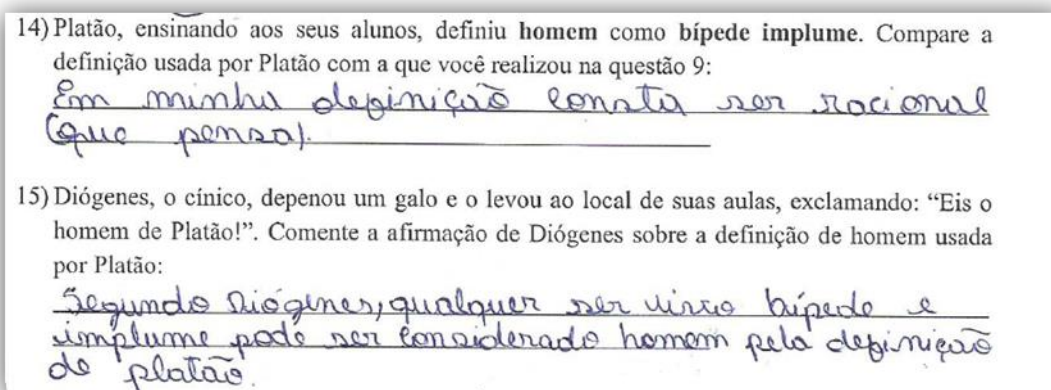 14) Platão, ensinando aos seus alunos, definiu homem como bípede implume. Compare a
definição usada por Platão com a que você realizou na questão 9:
Em minha definição consta ser racional
(que pensa).
15) Diógenes, o cínico, depenou um galo e o levou ao local de suas aulas, exclamando: “Eis o
homem de Platão!”. Comente a afirmação de Diógenes sobre a definição de homem usada
por Platão:
Segundo Diógenes, qualquer ser vivo bípede e
implume pode ser considerado homem pela definição
de platão.